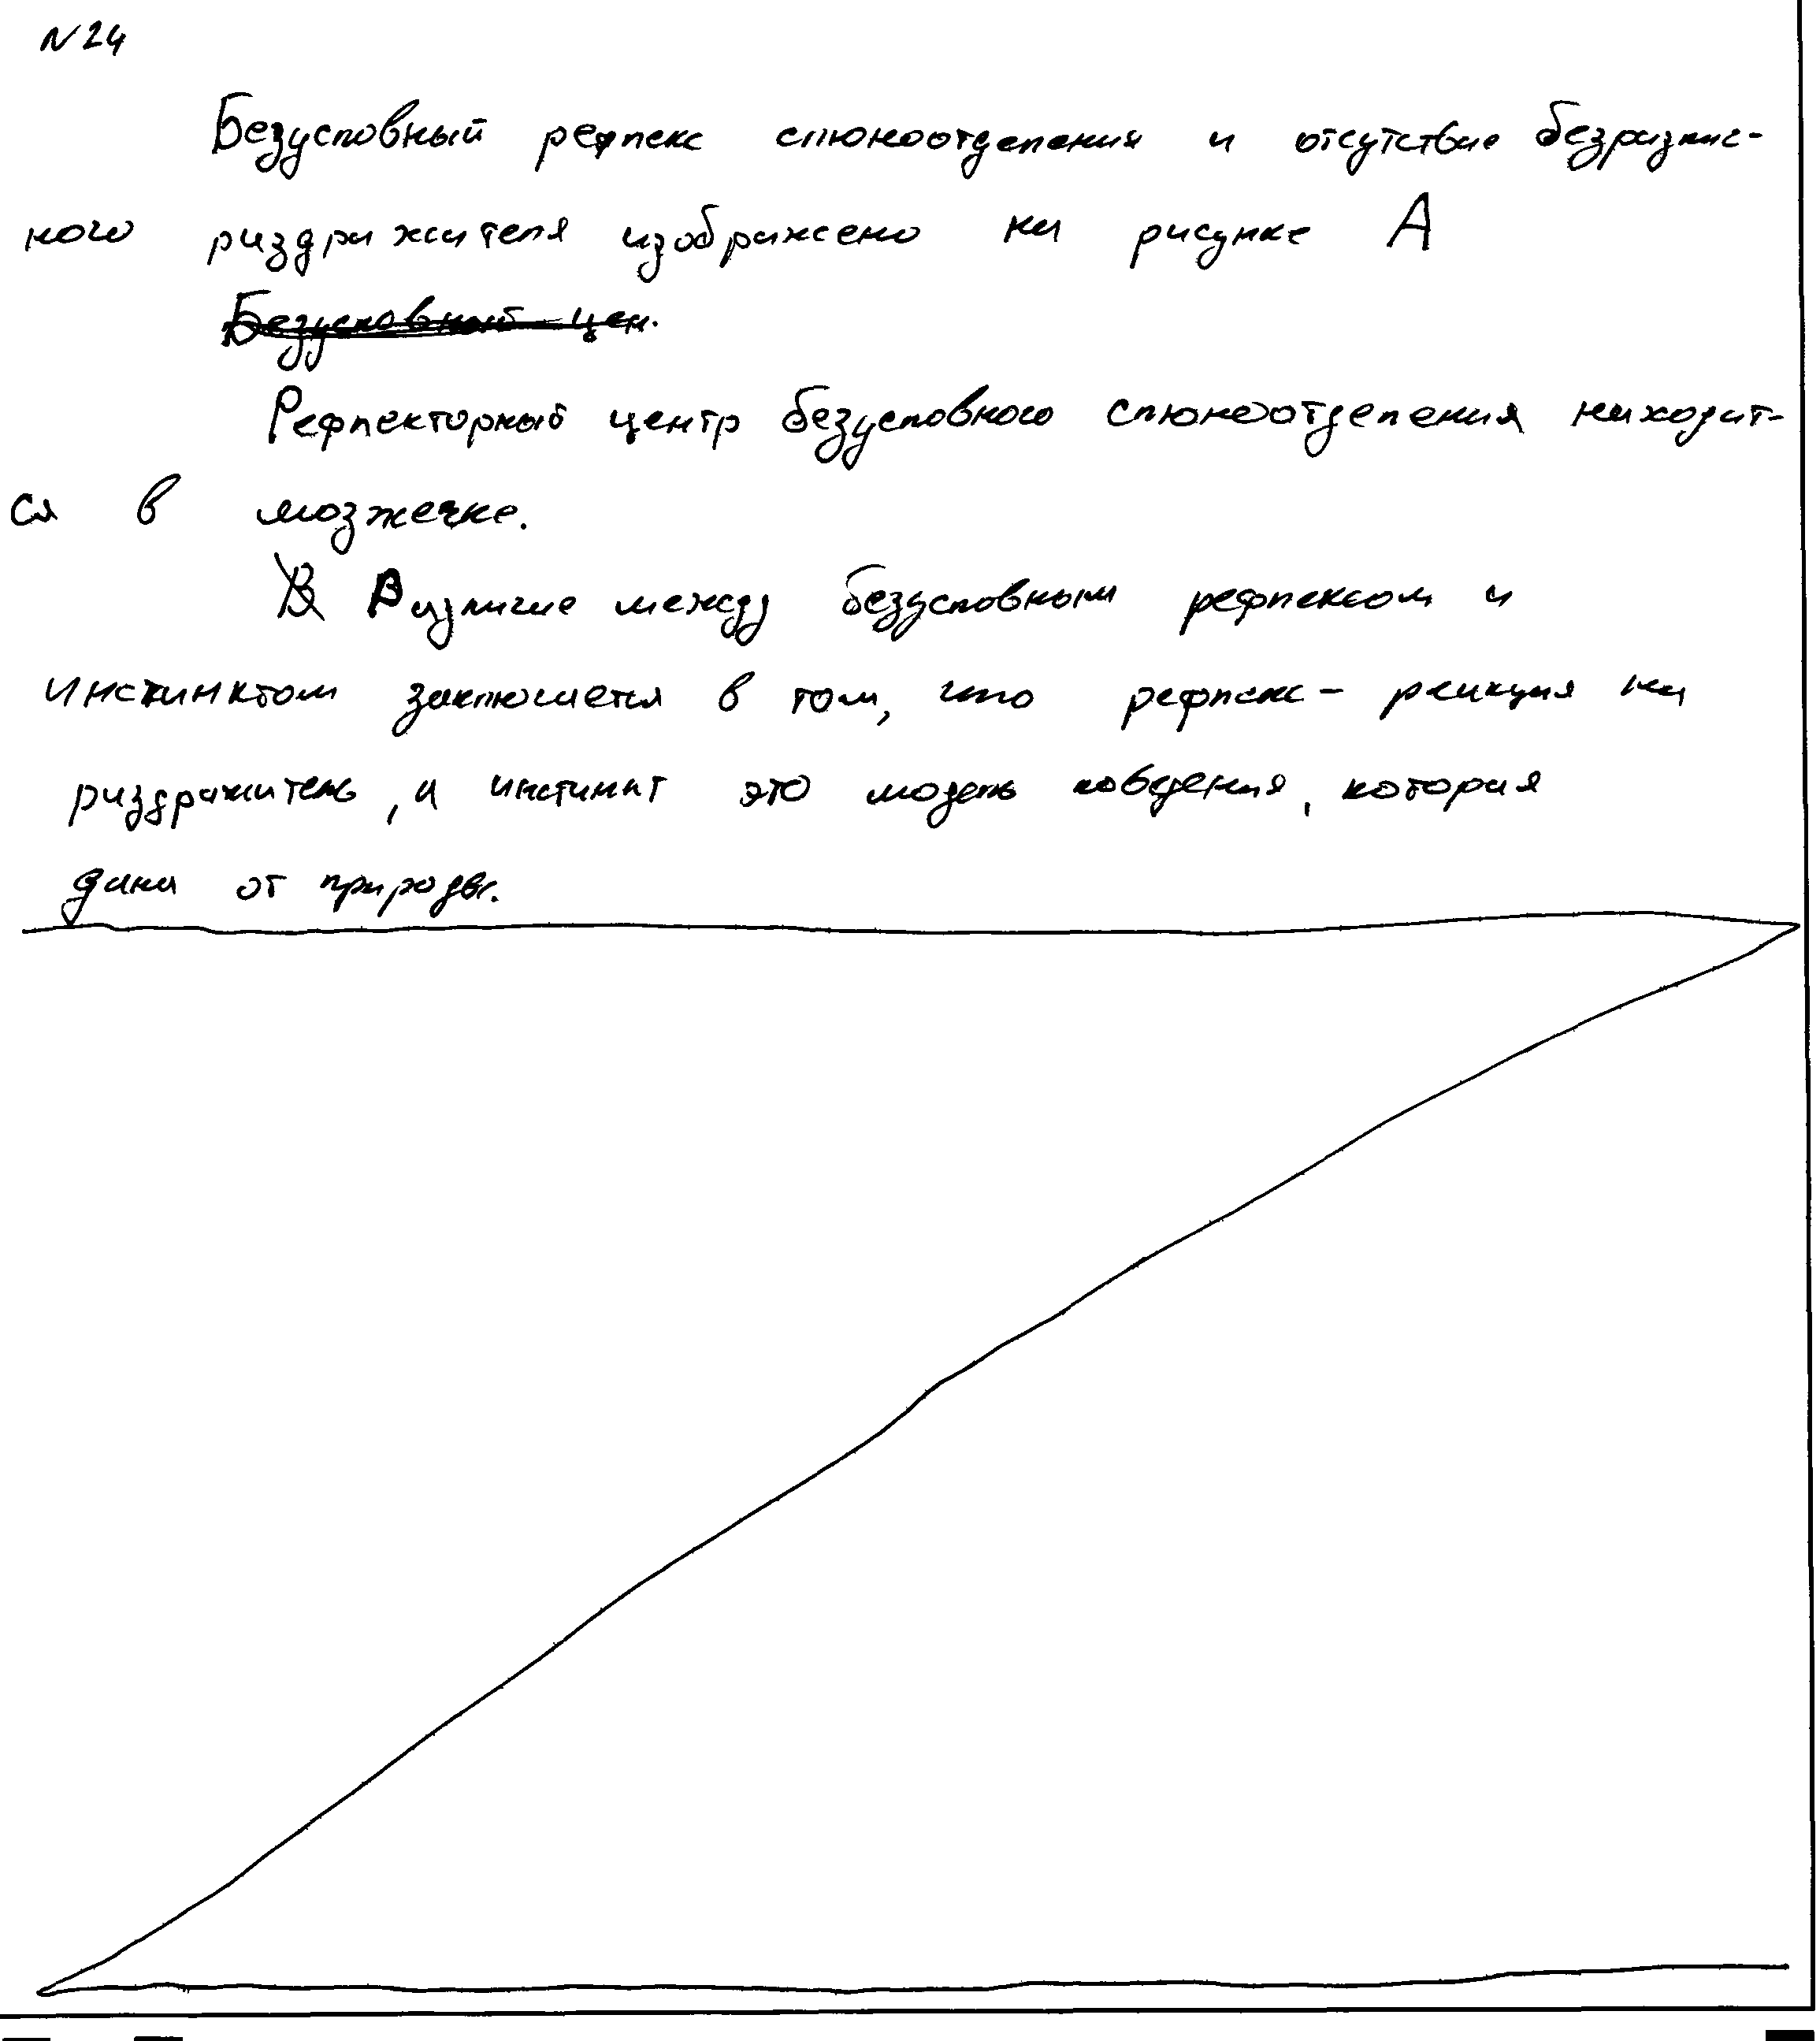 №24
Безусловный рефлекс слюноотделения и отсутствие безразлич-
ного раздражителя изображено на рисунке А
Безусловный цен.
Рефлекторный центр безусловного слюноотделения находит-
ся в мозжечке.
В Различие между безусловным рефлексом и
инстинктом заключается в том, что рефлекс - реакция на
раздражитель, а инстинкт это модель поведения, которая
дана от природы.